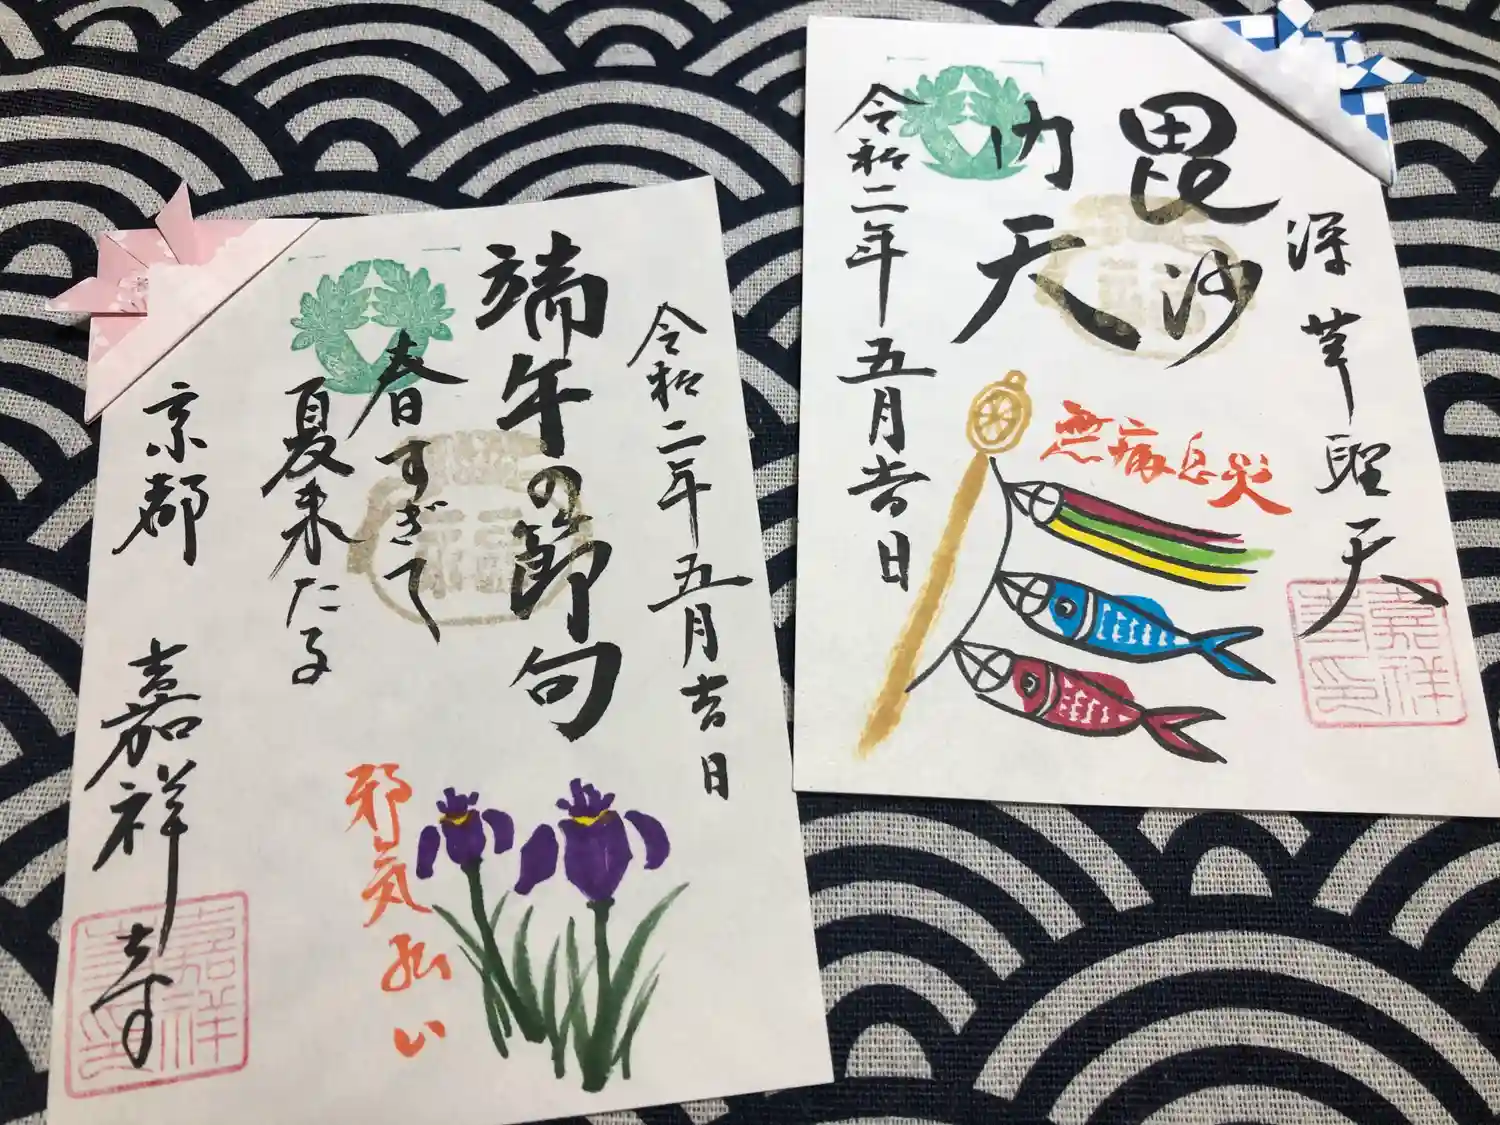 令和二年五月吉日
端午の節句
春すぎて
夏来たる
邪気払い
京都
嘉祥寺
嘉祥
寺印
深草聖天
毘沙
門天
無病息災
令和二年五月吉日
嘉祥
寺印